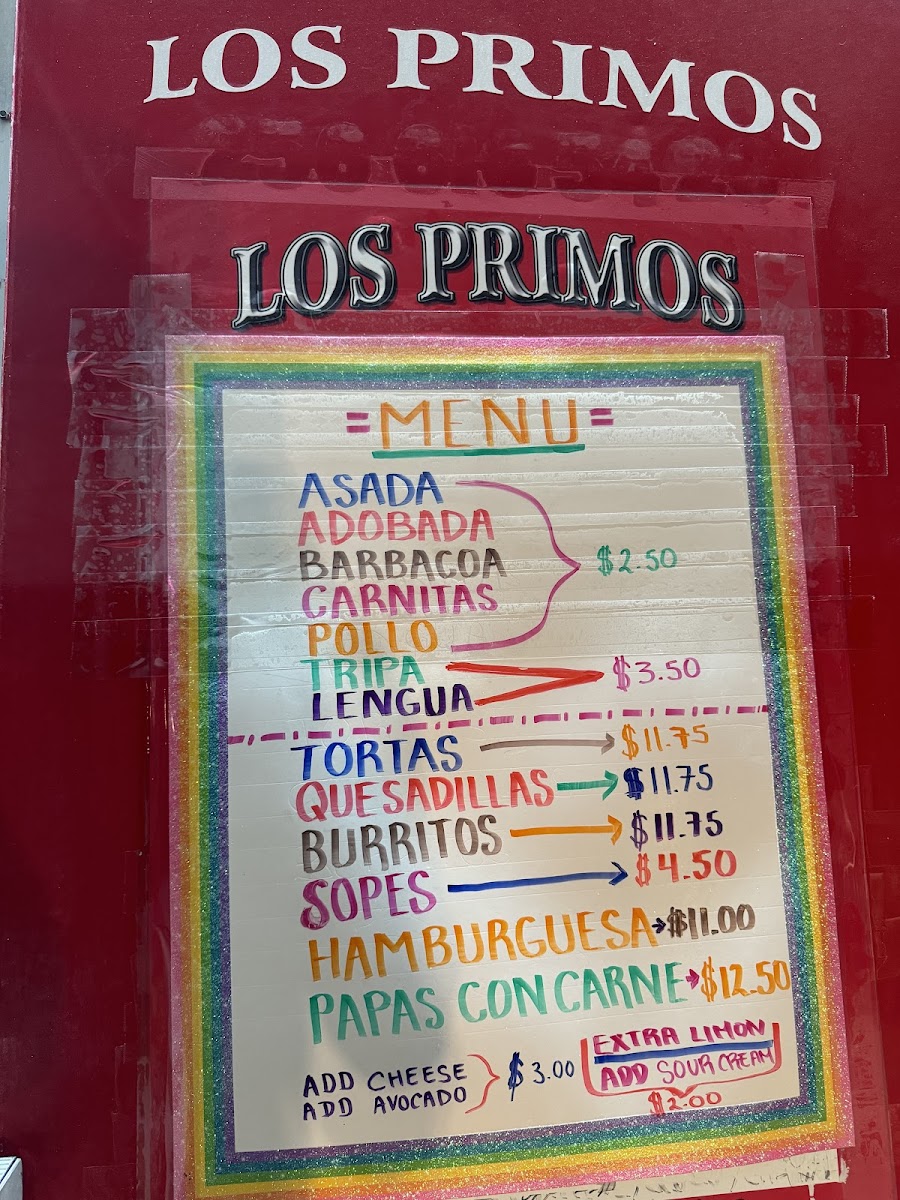 LOS PRIMOS
LOS PRIMOS
=MENU=
ASADA
ADOBADA
BARBACOA
CARNITAS
POLLO
$2.50
TRIPA
LENGUA
$3.50
TORTAS $11.75
QUESADILLAS $11.75
BURRITOS $11.75
SOPES $4.50
HAMBURGUESA $11.00
PAPAS CON CARNE $12.50
ADD CHEESE
ADD AVOCADO
$3.00
EXTRA LIMON
ADD SOUR CREAM
$2.00